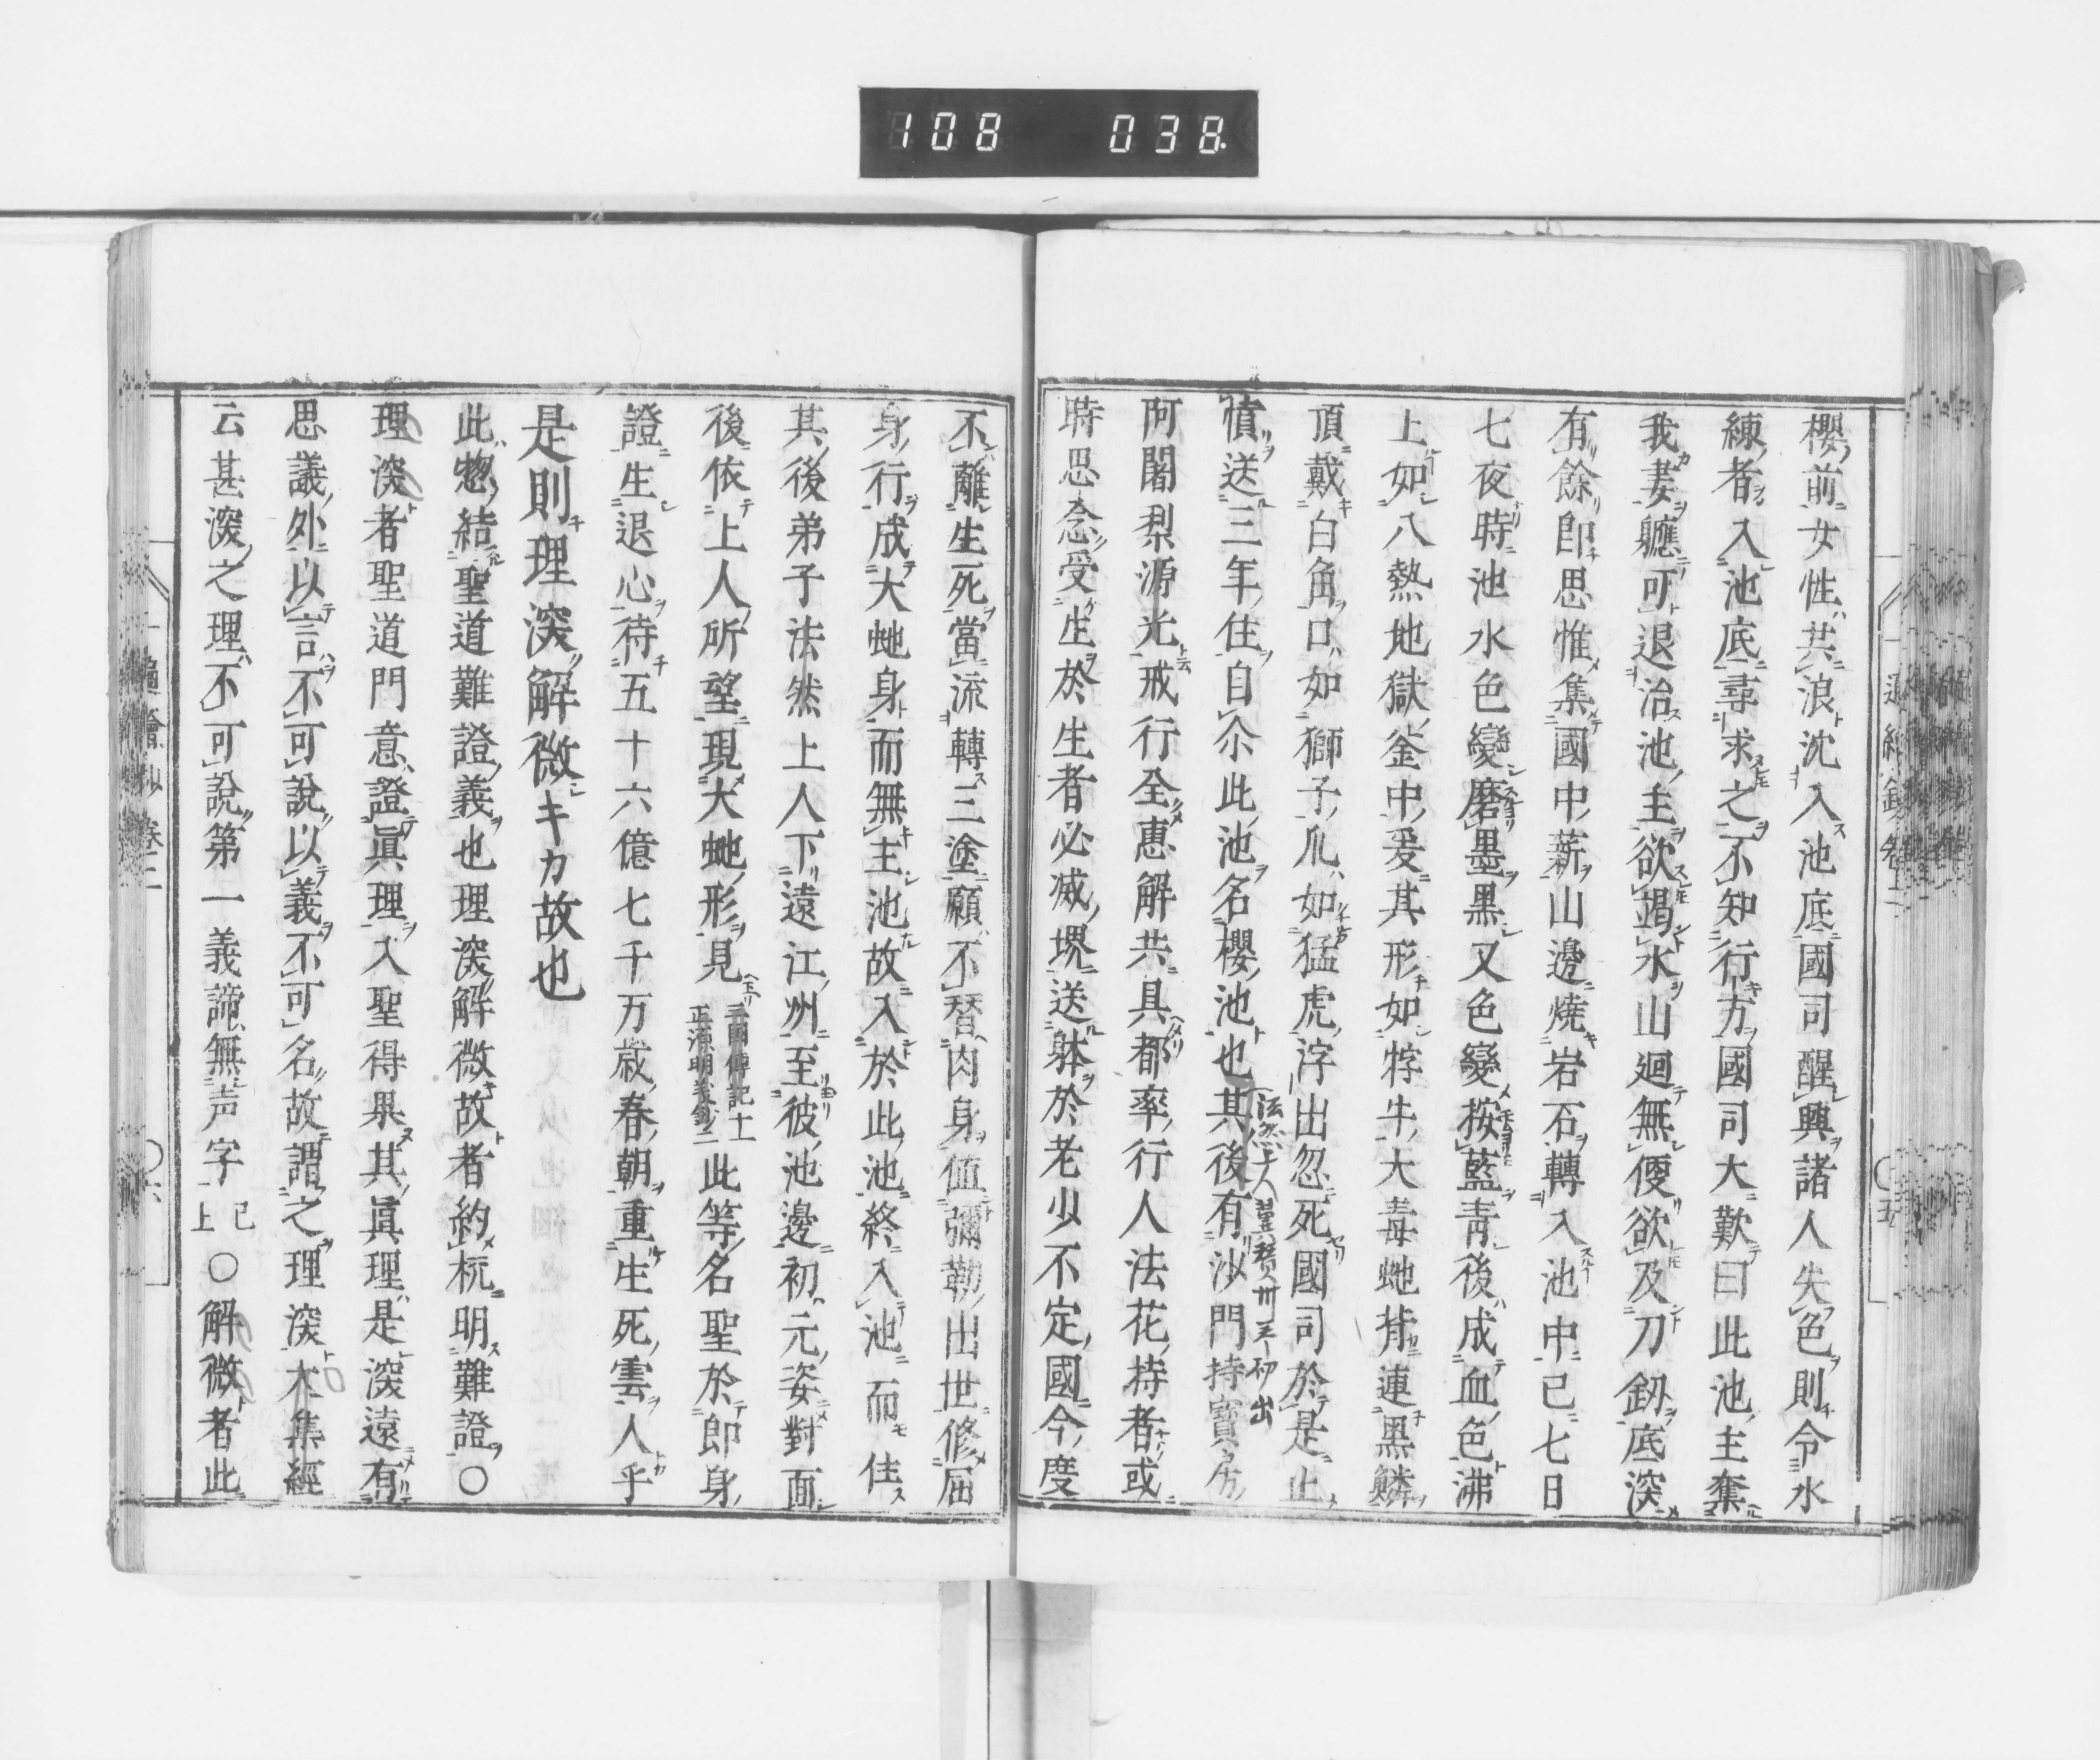 108 038
櫻前女性共浪沈入池底國司醒興諸人失色則令水
練者入池底尋求之不知行方國司大歎曰此池主奪
我妻軈可退治池主欲竭水山廻無便欲及刀釼底深
有餘即思惟集國中薪山邊燒岩石轉入池中已七日
七夜時池水色變磨墨黑又色變按藍靑後成血色沸
上如八熱地獄釜中爰其形如牸牛大毒虵背連黑鱗
頂戴白角口如獅子爪如猛虎浮出忽死國司於是止
憤送三年住自尒此池名櫻池也其後有沙門持寶房
法然上人
阿闍梨源光戒行全惠解共具都率行人法花持者或
時思念受生於生者必滅堺送躰於老少不定國今度
不離生死當流轉三塗願不替肉身值彌勒出世修屈
身行成大虵身而無主池故入於此池終入池而住
其後弟子法然上人下遠江州至彼池邊初元姿對面
後依上人所望現大虵形見 三國傳記十一 正源明義鈔二 此等名聖於即身
證生退心待五十六億七千万歲春朝重生死雲人乎
是則理深解微キカ故也
此惣結聖道難證義也理深解微故者約杬明難證○
理深者聖道門意證眞理入聖得果其眞理是深遠有
思議外以言不可說以義不可名故謂之理深大集經
云甚深之理不可說第一義諦無声字 已上 ○解微者此